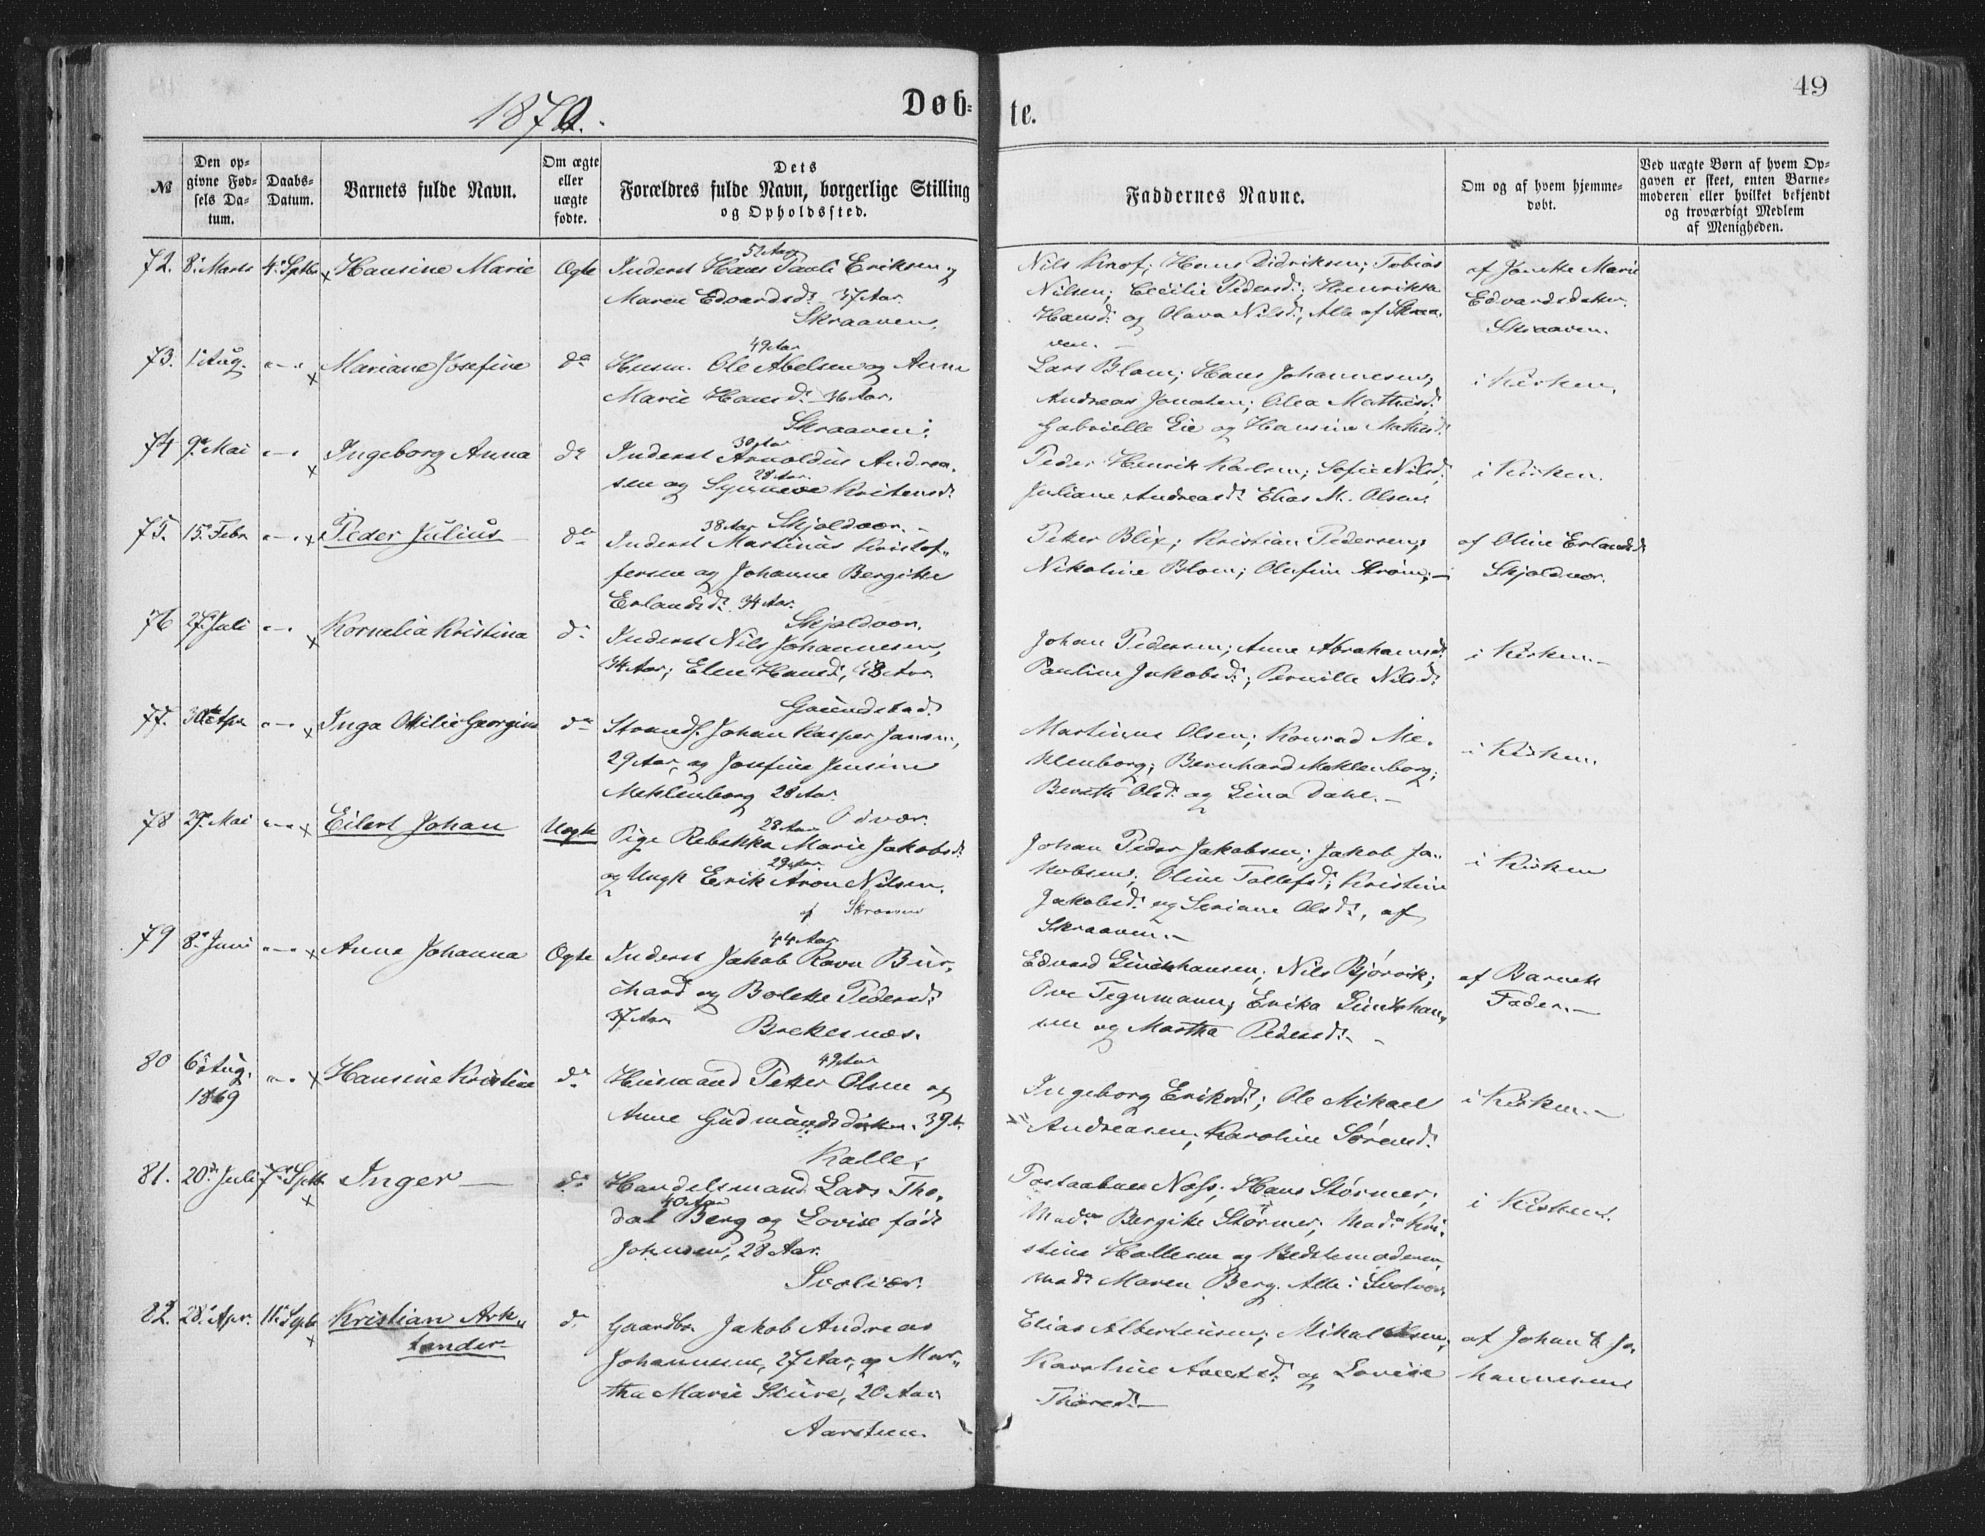 1870.
Døb-
te.
49
№
Den op-
givne Fød-
sels Da-
tum.
Daabs-
Datum.
Barnets fulde Navn.
Om ægte
eller
uægte
fødte.
Dets
Forældres fulde Navn, borgerlige Stilling
og Opholdssted.
Faddernes Navne.
Om og af hvem hjemme-
døbt.
Ved uægte Børn af hvem Op-
gaven er skeet, enten Barne-
moderen eller hvilket bekjendt
og troværdigt Medlem
af Menigheden.
72. 8. Marts 4. Septbr Hansine Marie Ægte
Inderst Hans Pauli Eriksen og
Maren Edvardsd. 37 Aar.
Skraaven.
Nils Knof; Hans Didriksen; Tobias
Nilsen; Cecilie Pedersd.; Henrikke
Hansd. og Olava Nilsd., Alle af Skraa-
ven.
af Janette Marie
Edvardsdatter
Skraaven.
73. 1. Aug. Mariane Josefine do
49 Aar
Husm. Ole Abelsen og Anne
Marie Hansd. 36 Aar.
Skraaven.
Lars Blom; Hans Johannesen,
Andreas Jonassen; Olea Mathisd.
Gabrielle Eie og Hansine Mathisd.
i Kirken.
74 9. Mai Ingeborg Anna do
30 Aar
Inderst Arnoldus Andrea-
28 Aar
sen og Synneve Kristensd.
Skjoldvær.
Peder Henrik Karlsen; Sofie Nilsd.
Juliane Andreasd. Elias M. Olsen.
i Kirken.
75. 15. Febr Peder Julius do
38 Aar
Inderst Martinus Kristof-
fersen og Johanne Bergitte
Erlandsd. 34 Aar.
Skjoldvær.
Peter Blix; Kristian Pedersen;
Nikoline Blom; Olufine Strøm;
af Oline Erlandsd.
Skjoldvær.
76 27. Juli Kornelia Kristina do
Inderst Nils Johannesen,
34 Aar; Elen Hansd., 48 Aar.
Grundstad.
Johan Pedersen; Anne Abrahamsd.
Pauline Jakobsd.; Pernille Nilsd.
i Kirken.
77. 30te Apr Inga Otilie Georgine do
Strands. Johan Kasper Jansen,
29 Aar, og Josefine Jensine
Meklenborg 28 Aar.
Odvær.
Martinus Olsen; Konrad Me-
klenborg; Bernhard Meklenborg;
Berith Olsd. og Gina Dahl.
i Kirken.
78 29. Mai Eilert Johan Uægte
28 Aar
Pige Rebekka Marie Jakobsd.
29 Aar
og Ungk Erik Aron Nilsen.
af Skraaven
Johan Peder Jakobsen; Jakob Ja-
kobsen; Oline Tollefsd.; Kristine
Jakobsd. og Seriane Olsd., af
Skraaven.
i Kirken
79 8. Juni Anna Johanna Ægte
44 Aar
Inderst Jakob Ravn Bur-
chard og Bolette Pedersd.
37 Aar Brekesnæs.
Edvard Gundshansen; Nils Bjørvik;
Ove Tegnmann; Erika Gundshan-
sen og Martha Pedersd.
af Barnets
Fader.
80 6. Aug.
1869
Hansine Kristine do
49 Aar
Husmand Peter Olsen og
Anne Gudmundsdatter. 39 A.
Kalle,
Ingeborg Eriksd.; Ole Mikael
Andreasen, Karoline Sørensd.
i Kirken.
81. 20. Juli 7. Septb Inger do
Handelsmand Lars Tho-
40 Aar
dal Berg og Lovise født
Johnsen, 28 Aar.
Svolvær.
Postaabner Nøss; Hans Størmer;
Mad. Bergitte Størmer; Mad. Kri-
stine Hallesen og Bedstemoderen,
Mad. Maren Berg. Alle i Svolvær.
i Kirken.
82. 28. Apr. 11. Septb Kristian Ark-
tander
do
Gaardbr. Jakob Andreas
Johannesen, 27 Aar, og Mar-
tha Marie Sture, 20 Aar.
Aarsteen.
Elias Albertinsen; Mikal Olsen,
Karoline Arentsd. og Lovise
Thoresd.
af Johan E Jo-
hannesen